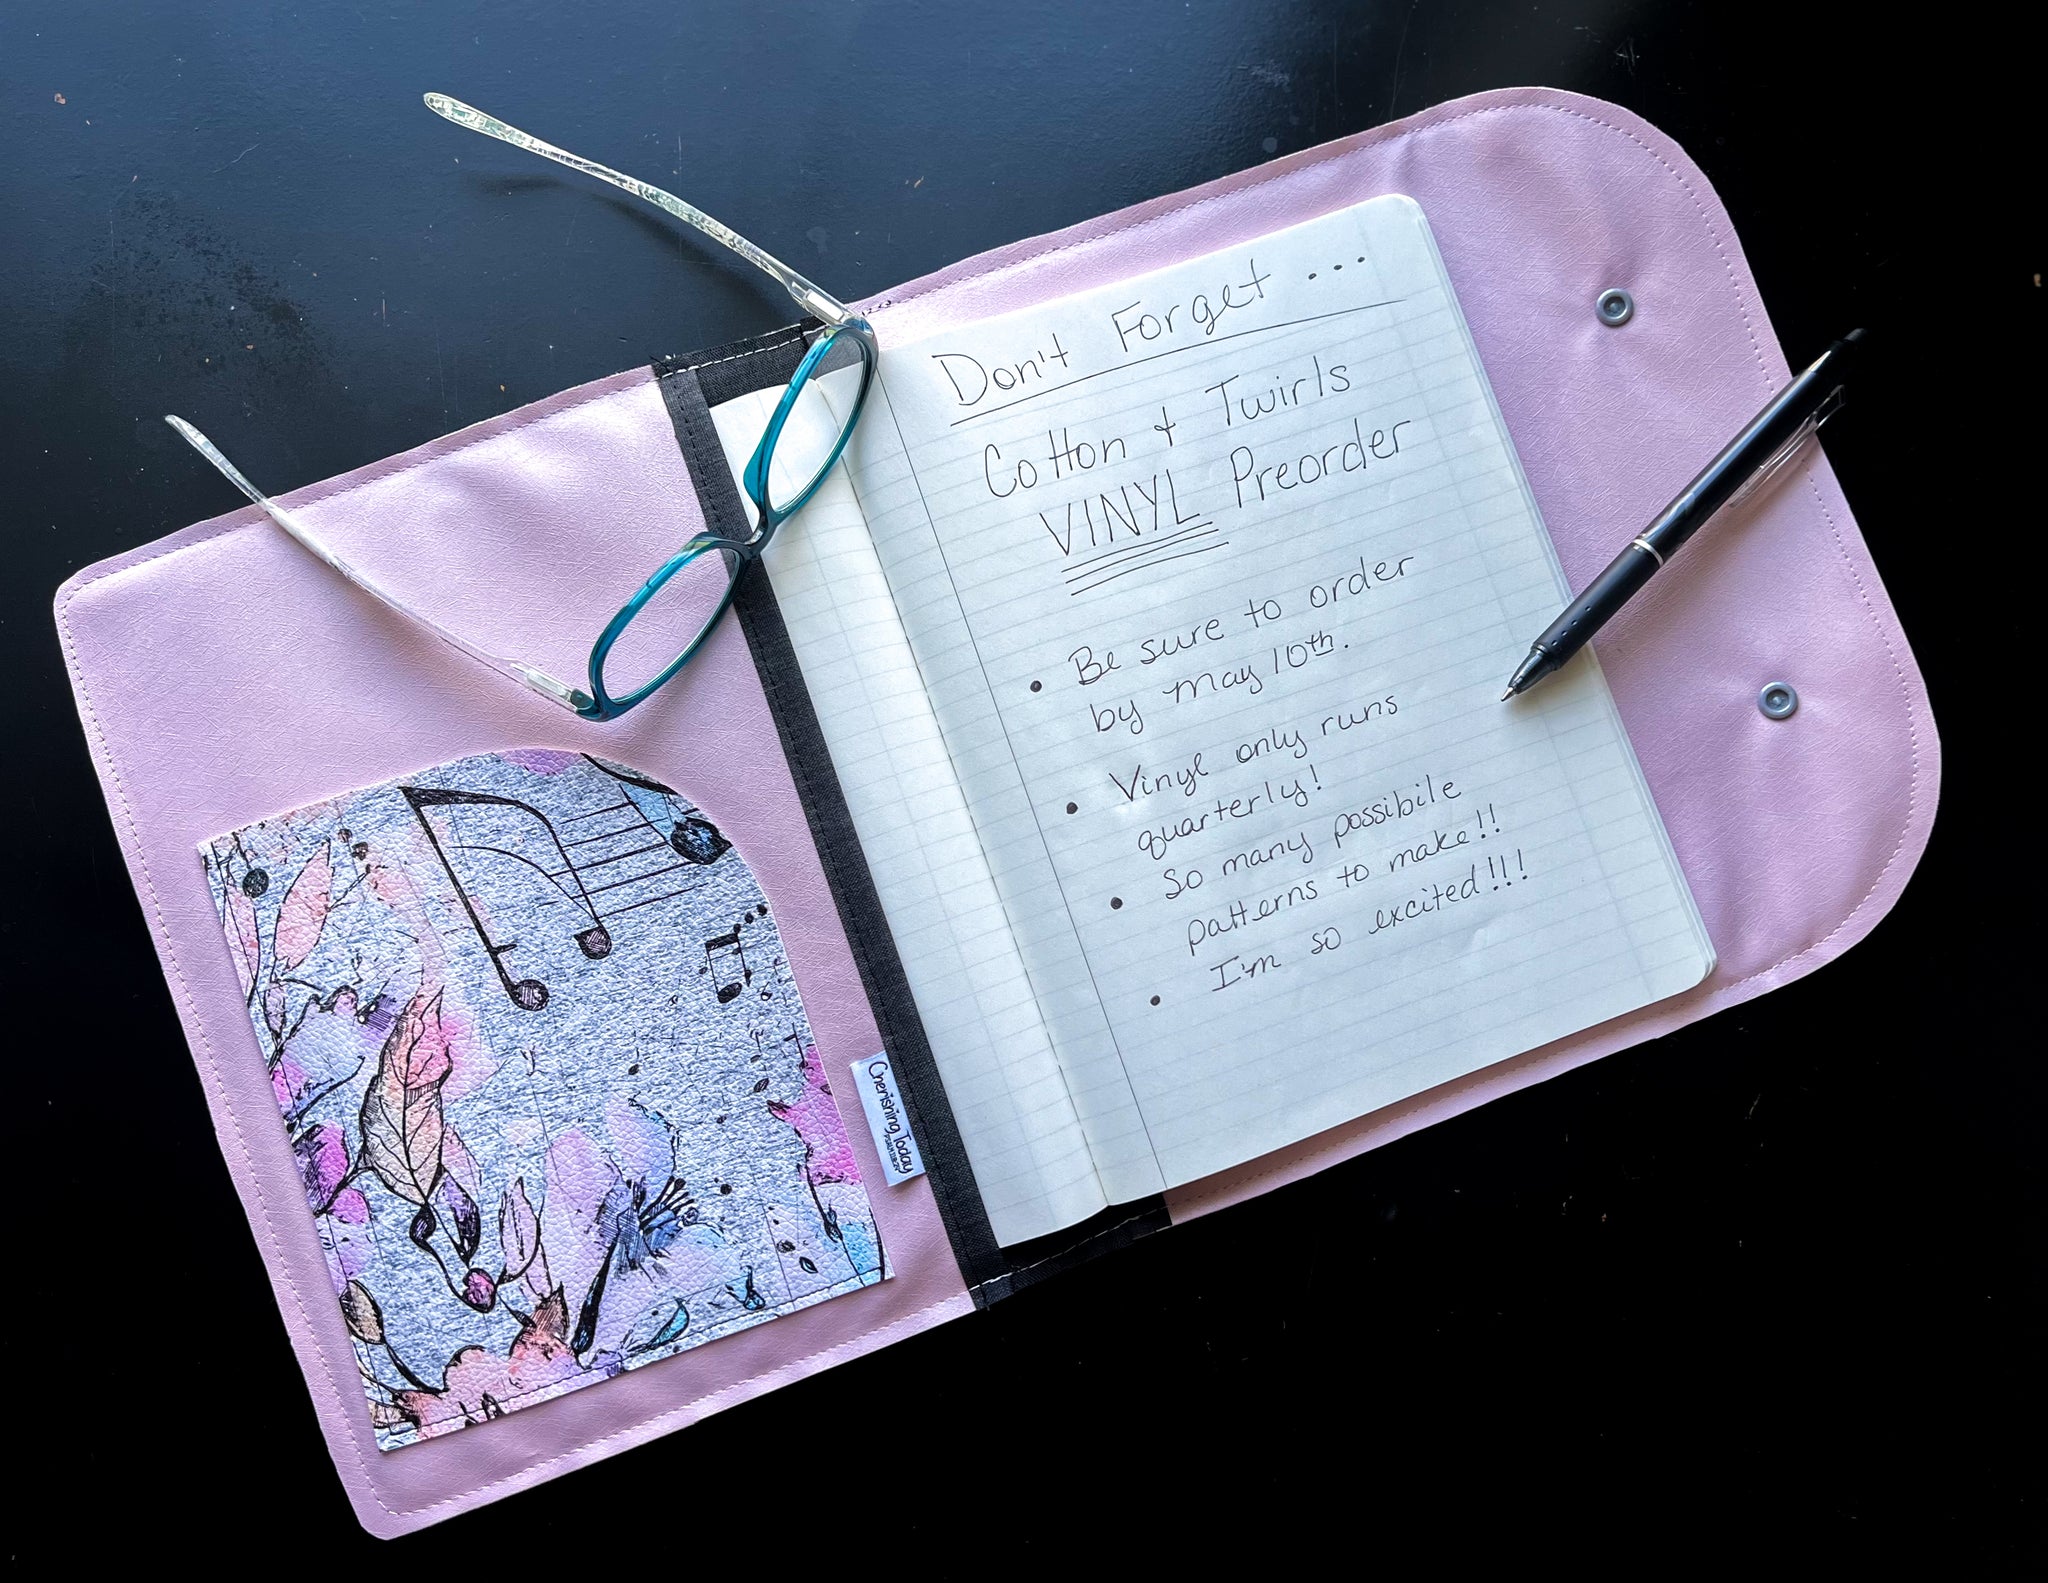 Don't Forget ...
Cotton + Twirls
VINYL Preorder
• Be sure to order
by May 10th.
• Vinyl only runs
quarterly!
• So many possibile
patterns to make!!
• I'm so excited!!!
Cherishing Today